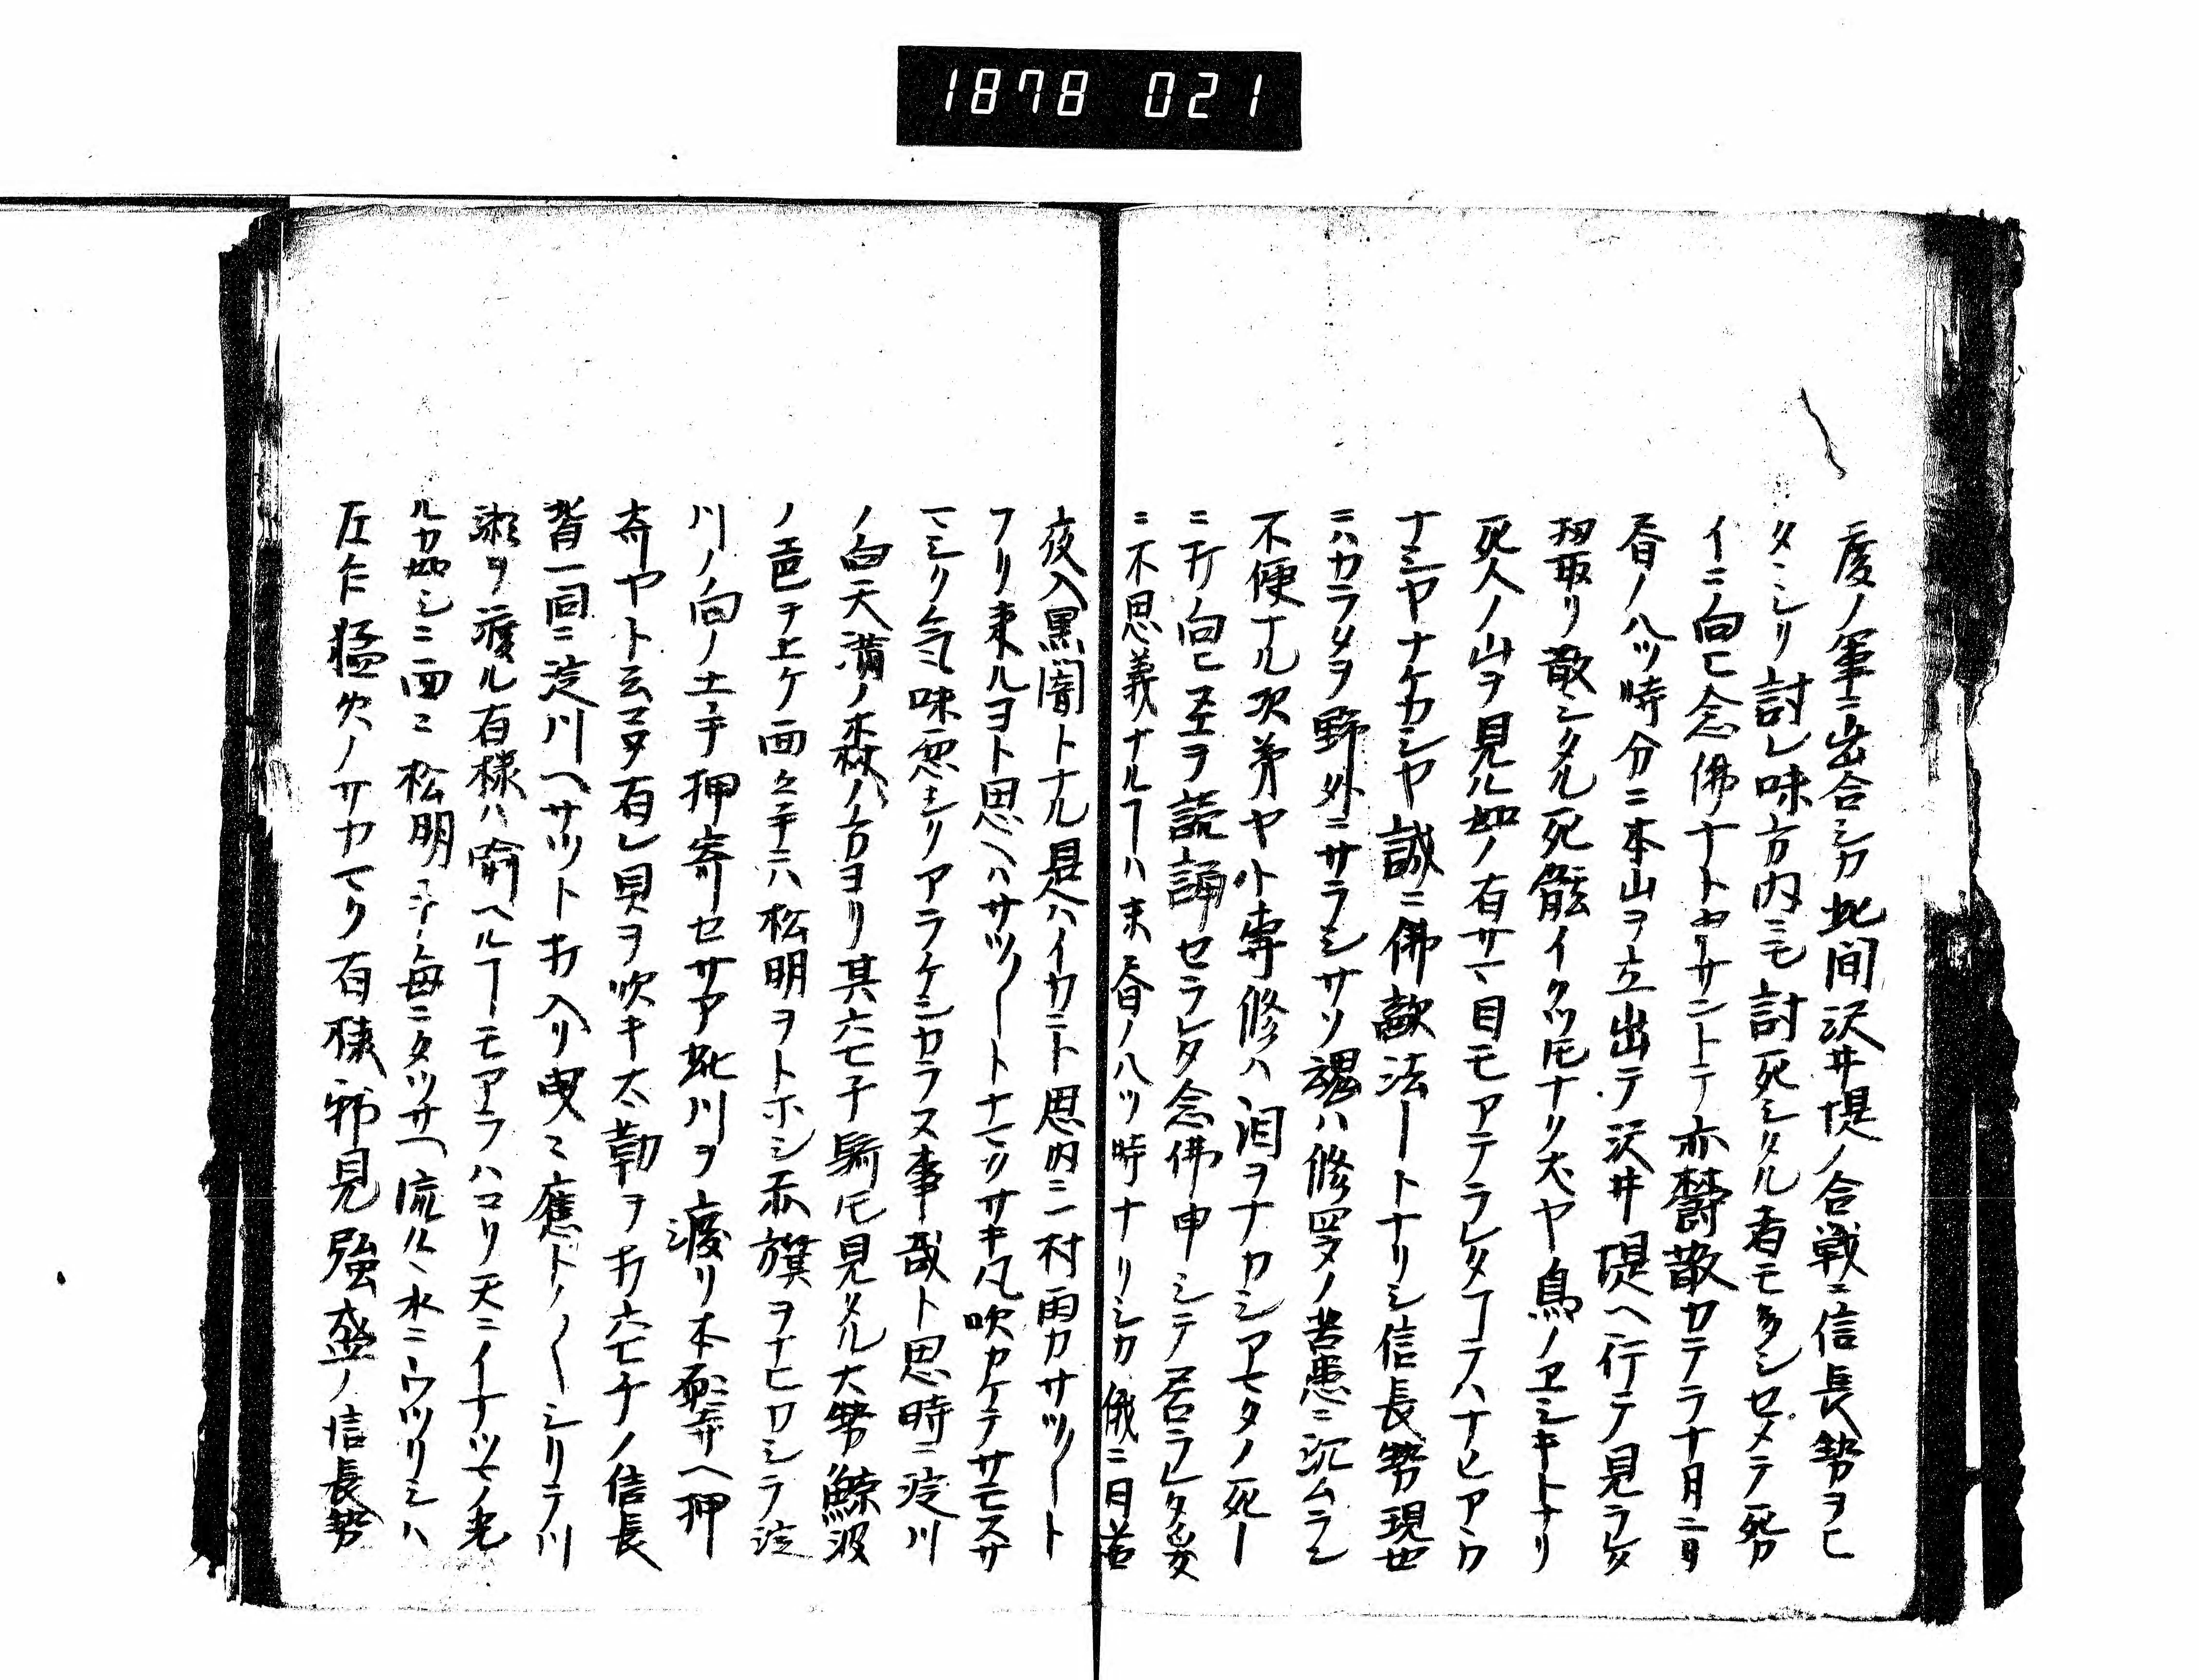 1878 021
度ノ軍ニ出合シカ此間沢井堤ノ合戦ニ信長勢ヲヒ
タヽシリ討レ味方内ニモ討死シタル者モ多シセメテ死カ
イニ向ヒ念佛ナト申サントテ亦欝散カテラ十月二日
昼ノ八ツ時分ニ本山ヲ立出テ沢井堤ヘ行テ見ラレタ
扨取リ散シタル死骸イクツモナク犬ヤ鳥ノヱシキトナリ
死人ノ山ヲ見ル如ノ有サマ目モアテラレタコテハナヒアヽ
ナシヤナケカシヤ誠ニ佛敵法ートナリシ信長勢現世
ニハカラタヲ野外ニサラシサソ魂ハ修羅ノ苦患ニ沉ムラン
不便ナル次第ヤト専修ハ泪ヲナカシアマタノ死ー
ニ打向ヒ至ヲ読誦セラレタ念佛申シテ居ラレタ爰
ニ不思義ナルヿハ末昼ノ八ツ時ナリシカ俄ニ月若
夜入黒闇トナル是ハイカニト思内ニ一村雨カサツノート
フリ来ルヨト思ヘハサツノートナマクサキ凡吹カケテサモスサ
マシク気味悪シリアラケシカラス事哉ト思時ニ淀川
ノ向天満ノ森ノ方ヨリ其六七千騎モ見タル大勢鯨波
ノ邑ヲ上ケ面々手ニハ松明ヲトホシ赤旗ヲナヒカシテ淀
川ノ向ノ土手押寄セサア此川ヲ渡リ本願寺ヘ押
寄ヤト云マヽ有レ貝ヲ吹キ太勒ヲ打六七千ノ信長
背一同ニ淀川ヘサツト打入リ曳々應トノノーシリテ川
瀬ヲ渡ル有様ハ喩ヘルヿモアラハコリ天ニイナツマノ光
ルカ如シニ面ニ松明ヲ手毎ニタツサヘ流ルヽ水ニウツリシハ
左乍猛火ノサカマク有様邪見強盛ノ信長勢